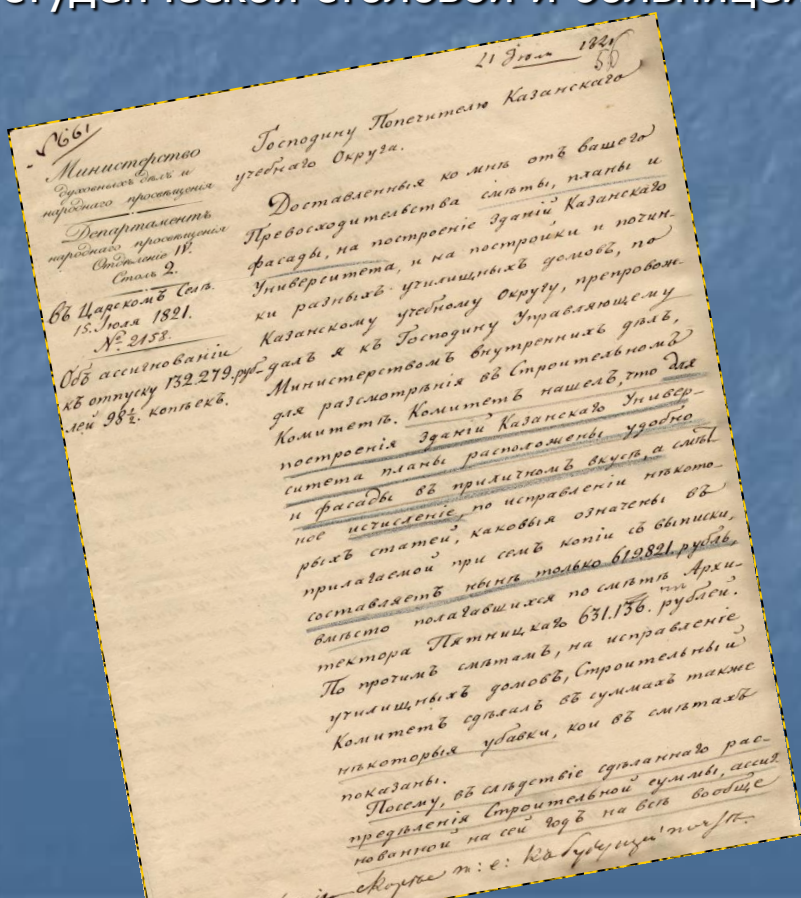 студенческой столовой и больницей
21 Июля 1821
56
№661
Господину Попечителю Казанскаго
учебнаго Округа.
Министерство
духовныхъ дѣлъ и
народнаго просвѣщенія
Департаментъ
народнаго просвѣщенія
Отдѣленіе IV.
Столъ 2.
въ Царскомъ Селѣ.
15. Іюля 1821.
№ 2158.
Объ ассигнованіи
къ отпуску 132.279.руб-
лей 98½. копѣекъ.
Доставленныя ко мнѣ отъ вашего
Превосходительства смѣты, планы и
фасады, на построеніе зданій Казанскаго
Университета, и на постройки и почин-
ки разныхъ училищныхъ домовъ, по
Казанскому учебному Округу, препровож-
далъ я къ Господину Управляющему
Министерствомъ внутреннихъ дѣлъ,
для разсмотрѣнія въ Строительномъ
Комитетѣ. Комитетъ нашелъ, что для
построенія зданій Казанскаго Универ-
ситета планы расположены удобно
и фасады въ приличномъ вкусѣ, а смѣт-
ное исчисленіе, по исправленіи нѣкото-
рыхъ статей, каковыя означены въ
прилагаемой при семъ копіи съ выписки,
составляетъ нынѣ только 619.821. рубль,
вмѣсто полагавшихся по смѣтѣ Архи-
тектора Пятницкаго 631.136. рублей.
По прочимъ смѣтамъ, на исправленіе
училищныхъ домовъ, Строительный
Комитетъ сдѣлалъ въ суммахъ также
нѣкоторыя убавки, кои въ смѣтахъ
показаны.
Посему, въ слѣдствіе сдѣланнаго рас-
предѣленія Строительной суммы, ассиг-
нованной на сей годъ на всѣ вообще
т: е: къ будущей